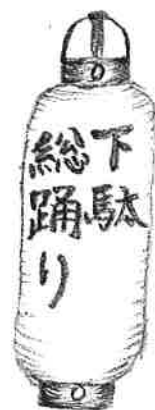 下駄
総踊り